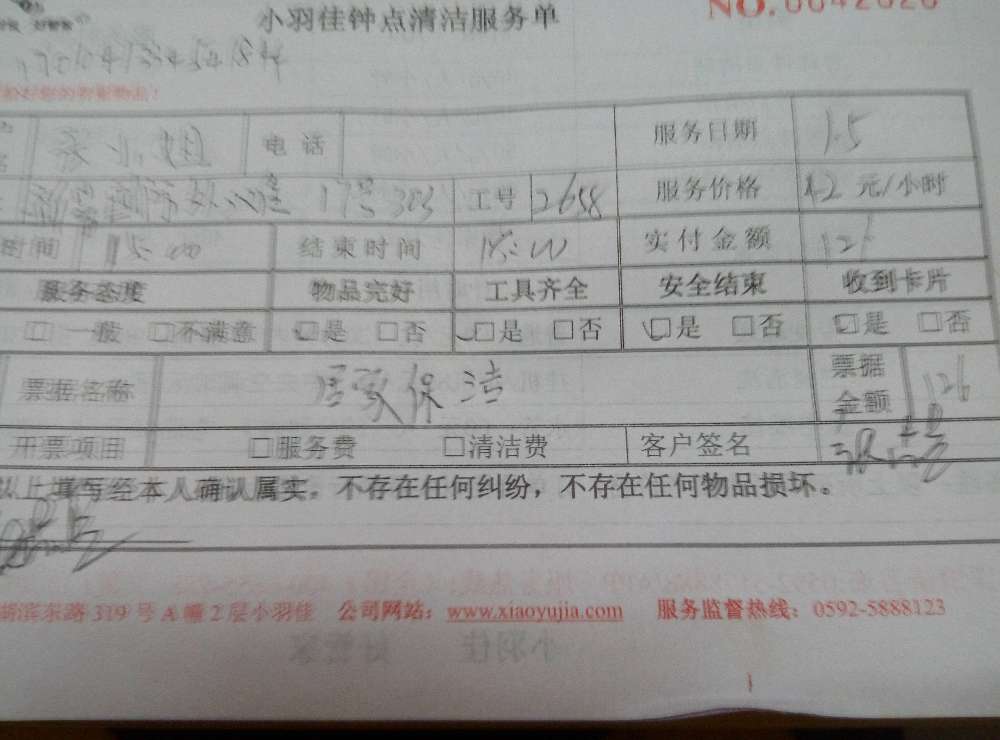 小羽佳钟点清洁服务单
NO.0042626
张小姐 电话 服务日期 1.5
17号303 工号 2658 服务价格 42元/小时
时间 15:00 结束时间 18:00 实付金额 126
服务态度 物品完好 工具齐全 安全结束 收到卡片
□一般 □不满意 □是 □否 □是 □否 □是 □否 □是 □否
票据名称 居家保洁 票据金额 126
开票项目 □服务费 □清洁费 客户签名
以上填写经本人确认属实。不存在任何纠纷，不存在任何物品损坏。
湖滨东路319号A幢2层小羽佳 公司网站：www.xiaoyujia.com 服务监督热线：0592-5888123